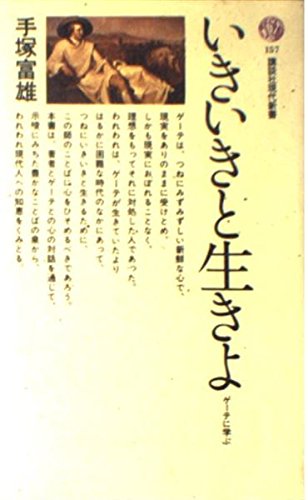 157
講談社現代新書
いきいきと生きよ
ゲーテに学ぶ
手塚富雄
ゲーテは、つねにみずみずしい新鮮な心で、
現実をありのままに受けとめ、
しかも現実におぼれることなく、
理想をもってそれに対処した人であった。
われわれは、ゲーテが生きていたより
はるかに困難な時代のなかにあって、
つねにいきいきと生きるために、
この師のことばに心をひそめるべきであろう。
本書は、著者とゲーテとの心の対話を通じて、
示唆にみちた豊かなことばの泉から、
われわれ現代人への知恵をくみとる。